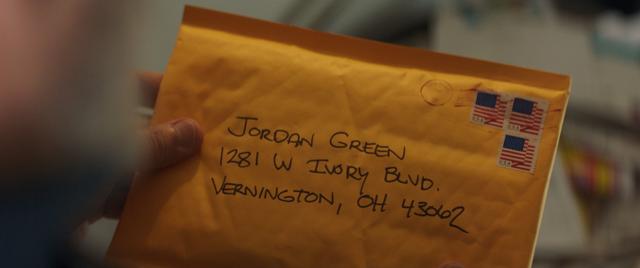 JORDAN GREEN
1281 W IVORY BLVD.
VERNINGTON, OH 43062